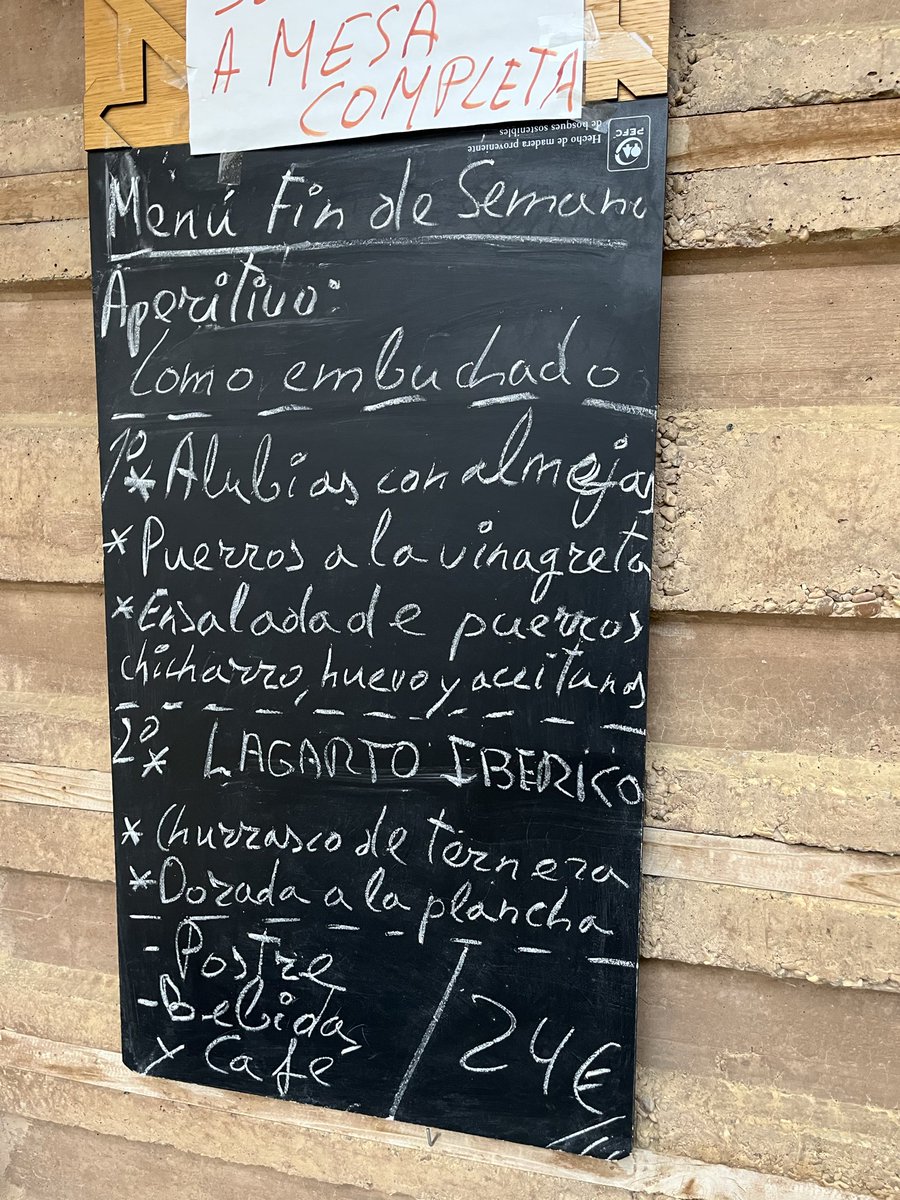 A MESA
COMPLETA
PEFC
Hecho de madera proveniente
de bosques sostenibles
Menú Fin de Semana
Aperitivo:
Lomo embuchado
1º * Alubias con almejas
* Puerros a la vinagreta
* Ensalada de puerros
chicharro, huevo y aceitunas
2º * LAGARTO IBERICO
* Churrasco de ternera
* Dorada a la plancha
- Postre
- Bebida,
y Cafe
24€